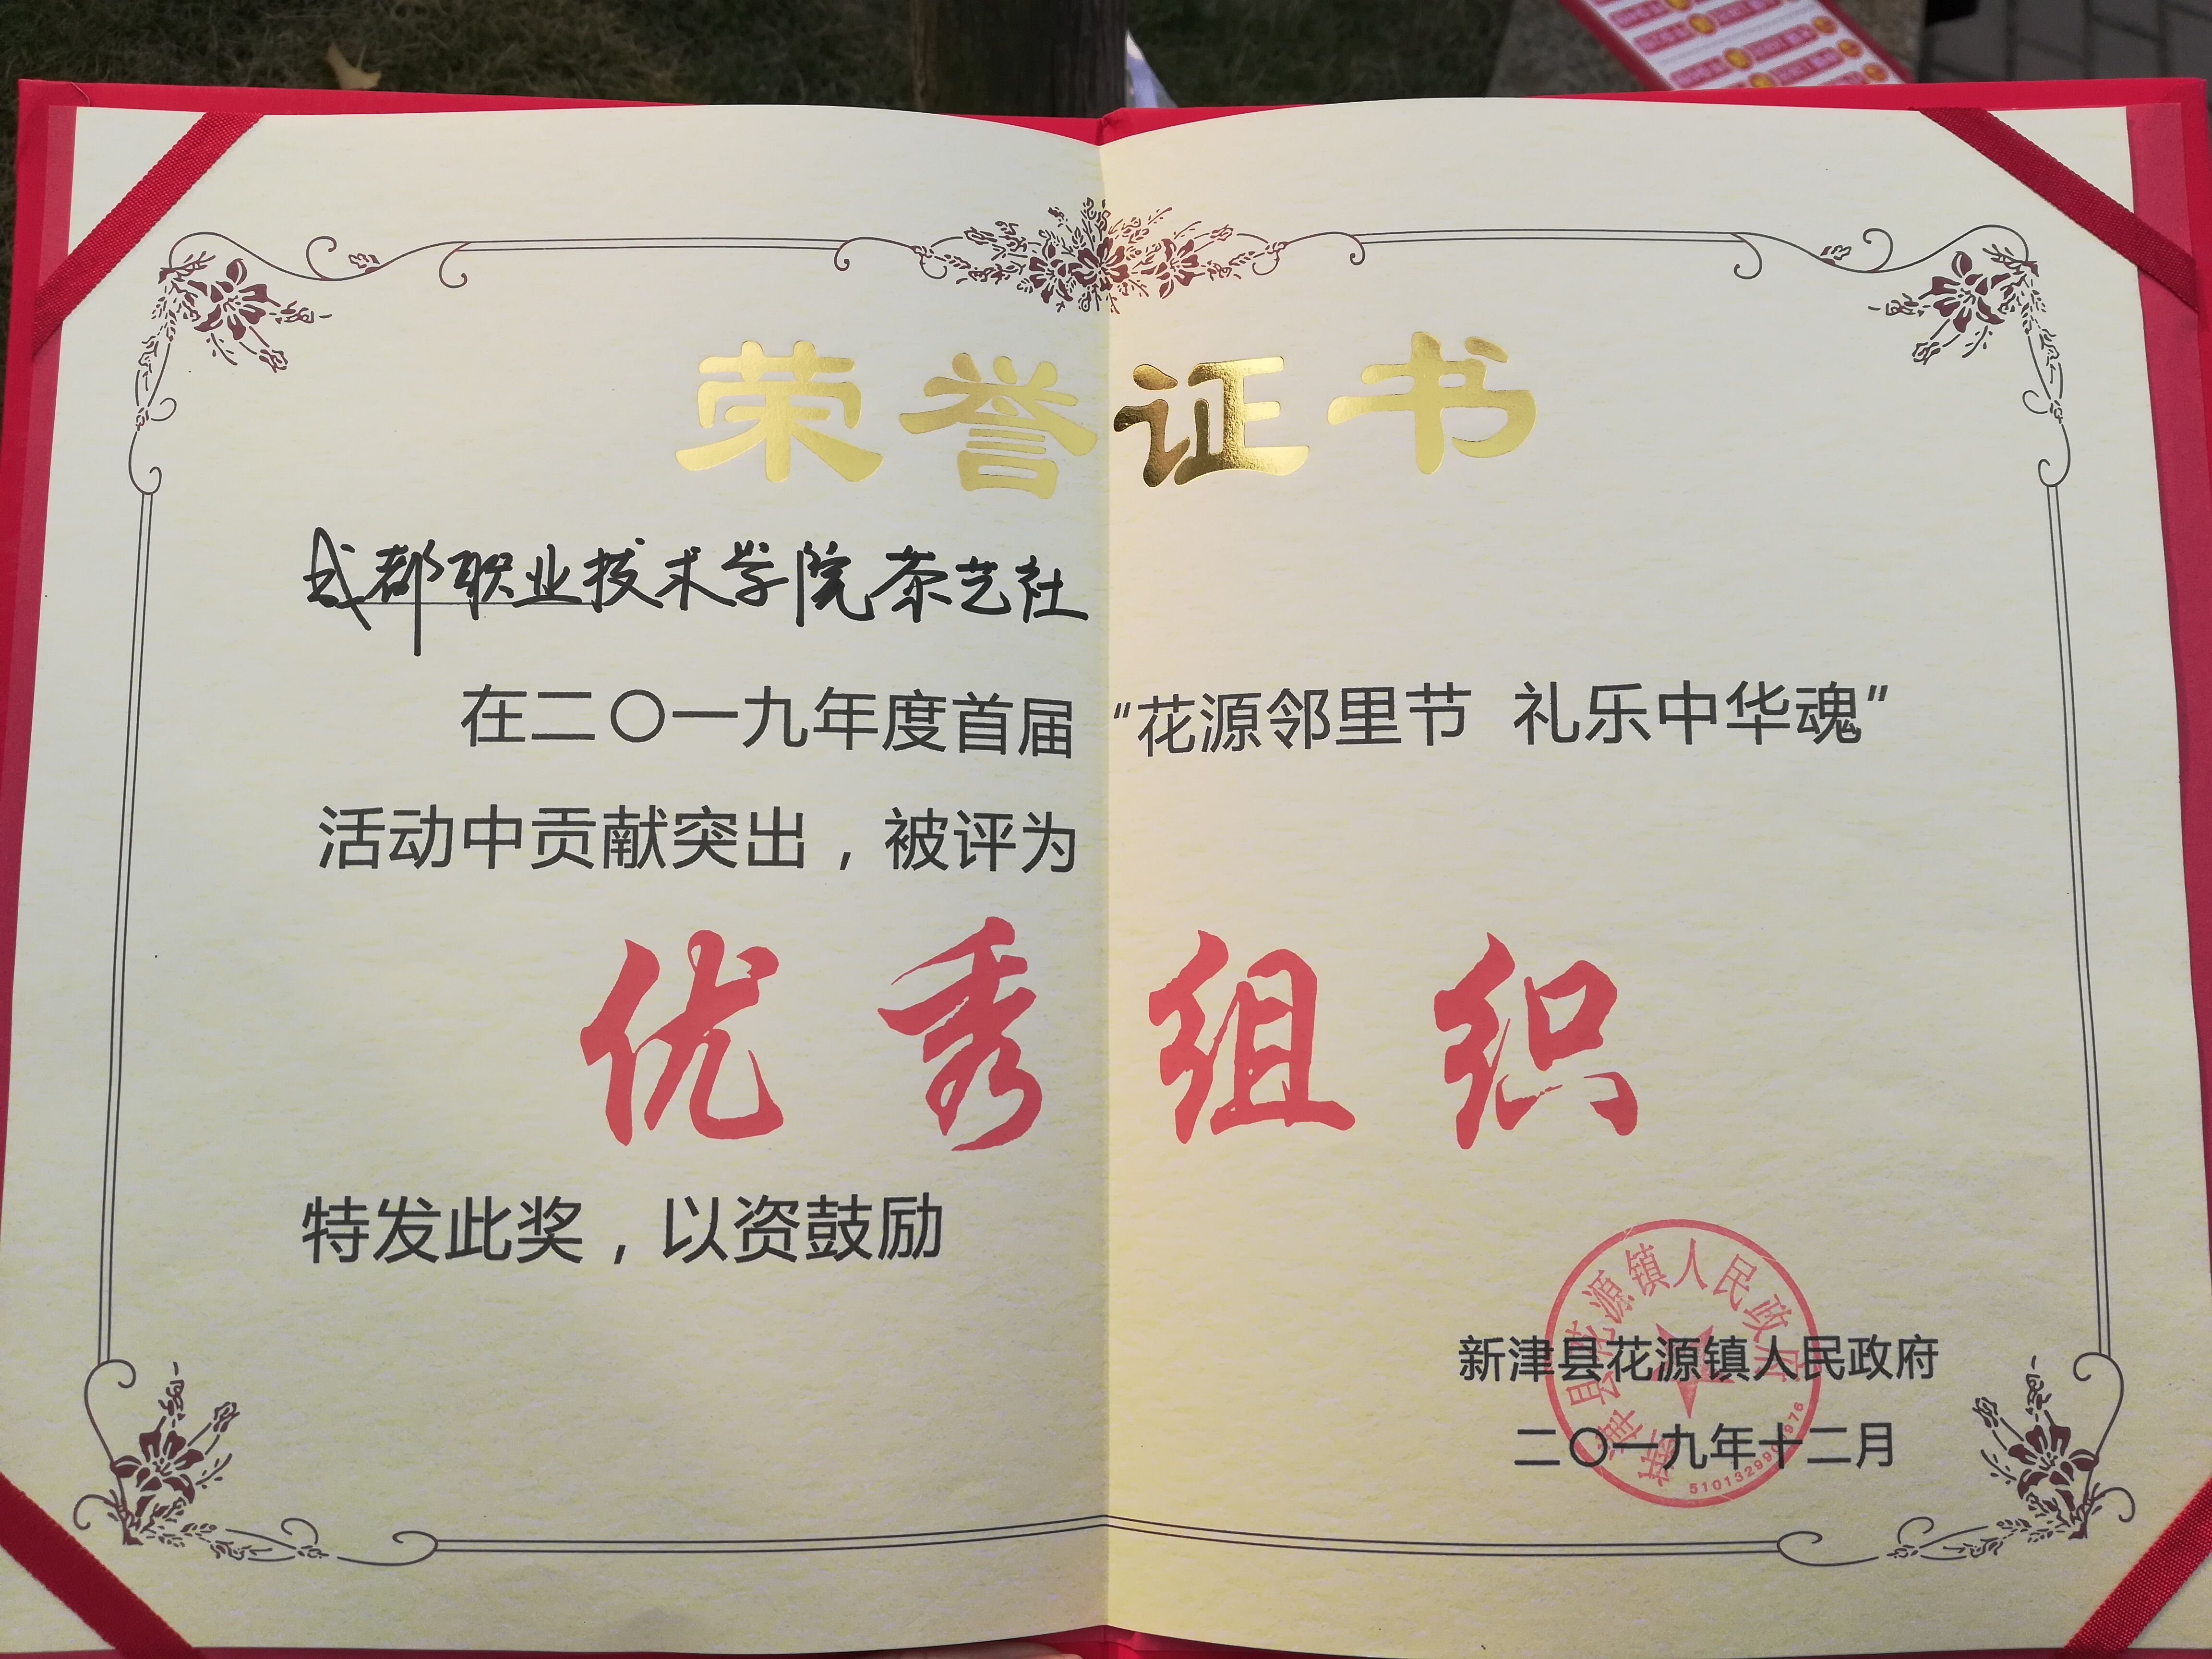 荣誉证书
成都职业技术学院茶艺社
在二〇一九年度首届“花源邻里节 礼乐中华魂”
活动中贡献突出，被评为
优秀组织
特发此奖，以资鼓励
新津县花源镇人民政府
新津县花源镇人民政府
二〇一九年十二月